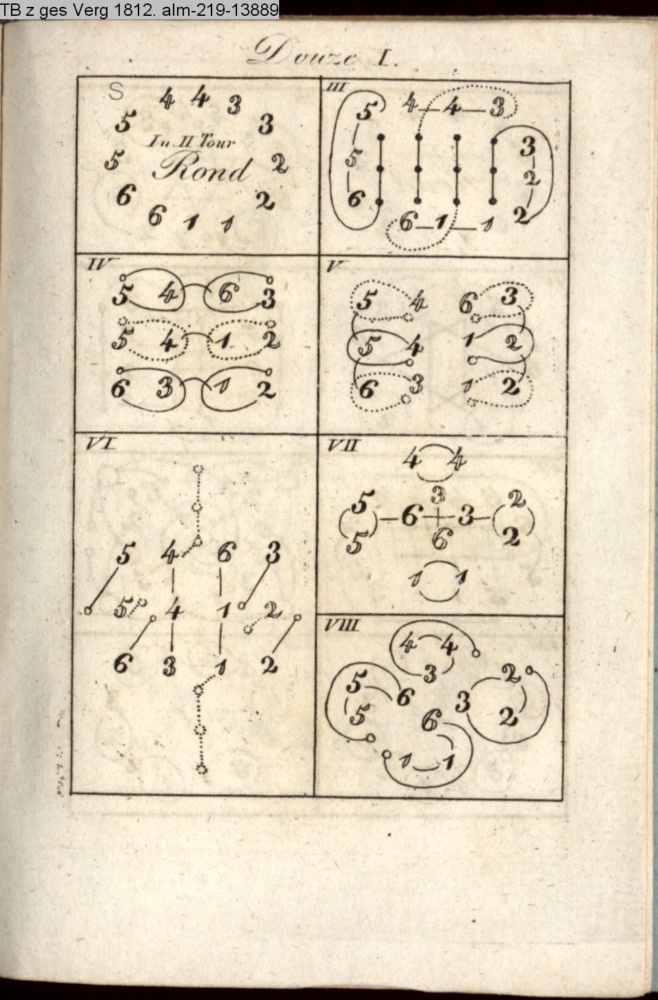 TB z ges Verg 1812. alm-219-13889
Douze I.
S
4 4 3
5 3
In. II Tour
5 Rond 2
6 2
6 1 1
III
5 4 4 3
5 3
2
6 2
6 1 1
IV
5 4 6 3
5 4 1 2
6 3 1 2
V
5 4 6 3
5 4 1 2
6 3 1 2
VI
5 4 6 3
5 4 1 2
6 3 1 2
VII
4 4
5 3 2
6 3
5 6 2
1 1
VIII
4 4
5 3 2
6 3
5 6 2
1 1